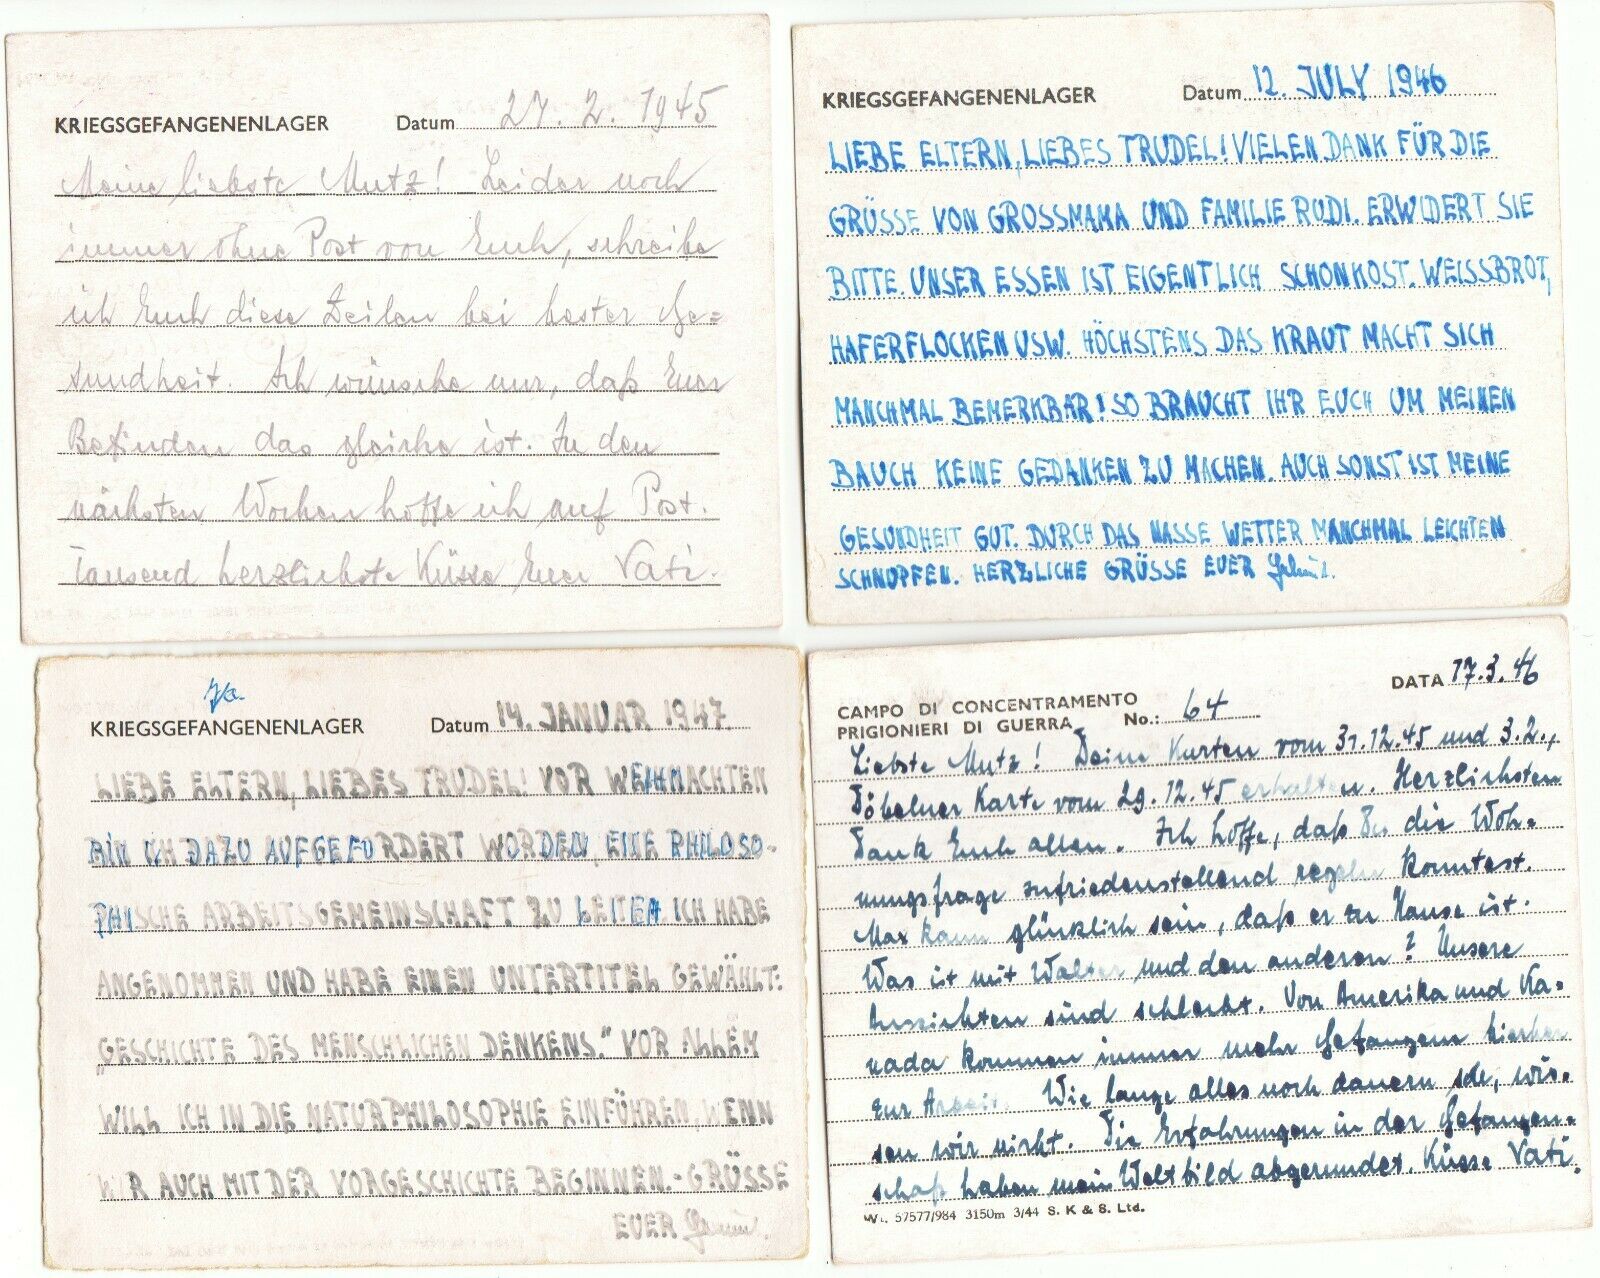 KRIEGSGEFANGENENLAGER Datum 27. 2. 1945
Meine liebste Mutz! Leider noch
immer ohne Post von Euch, schreibe
ich Euch diese Zeilen bei bester Ge=
sundheit. Ich wünsche nur, daß Euer
Befinden das gleiche ist. In den
nächsten Wochen hoffe ich auf Post.
Tausend herzlichste Küsse Euer Vati.
KRIEGSGEFANGENENLAGER Datum 12. JULY 1946
LIEBE ELTERN, LIEBES TRUDEL! VIELEN DANK FÜR DIE
GRÜSSE VON GROSSMAMA UND FAMILIE RUDI. ERWIDERT SIE
BITTE. UNSER ESSEN IST EIGENTLICH SCHONKOST. WEISSBROT,
HAFERFLOCKEN USW. HÖCHSTENS DAS KRAUT MACHT SICH
MANCHMAL BEMERKBAR! SO BRAUCHT IHR EUCH UM MEINEN
BAUCH KEINE GEDANKEN ZU MACHEN. AUCH SONST IST MEINE
GESUNDHEIT GUT. DURCH DAS NASSE WETTER MANCHMAL LEICHTEN
SCHNUPFEN. HERZLICHE GRÜSSE EUER
KRIEGSGEFANGENENLAGER Datum 14. JANUAR 1947.
LIEBE ELTERN, LIEBES TRUDEL! VOR WEIHNACHTEN
BIN ICH DAZU AUFGEFORDERT WORDEN, EINE PHILOSO-
PHISCHE ARBEITSGEMEINSCHAFT ZU LEITEN. ICH HABE
ANGENOMMEN UND HABE EINEN UNTERTITEL GEWÄHLT:
„GESCHICHTE DES MENSCHLICHEN DENKENS." VOR ALLEM
WILL ICH IN DIE NATURPHILOSOPHIE EINFÜHREN, WENN
WIR AUCH MIT DER VORGESCHICHTE BEGINNEN.- GRÜSSE
EUER
CAMPO DI CONCENTRAMENTO
PRIGIONIERI DI GUERRA No.: 64 DATA 17.3.46
Liebste Mutz! Deine Karten vom 31.12.45 und 3.2.,
Döbelner Karte vom 29.12.45 erhalten. Herzlichsten
Dank Euch allen. Ich hoffe, daß Du die Woh=
nungsfrage zufriedenstellend regeln konntest.
Max kann glücklich sein, daß er zu Hause ist.
Was ist mit Walter und den anderen? Unsere
Aussichten sind schlecht. Von Amerika und Ka=
nada kommen immer mehr Gefangene hierher
zur Arbeit. Wie lange alles noch dauern soll, wis=
sen wir nicht. Die Erfahrungen in der Gefangen=
schaft haben mein Weltbild abgerundet. Küsse Vati.
Wt. 57577/984 3150m 3/44 S. K & S. Ltd.